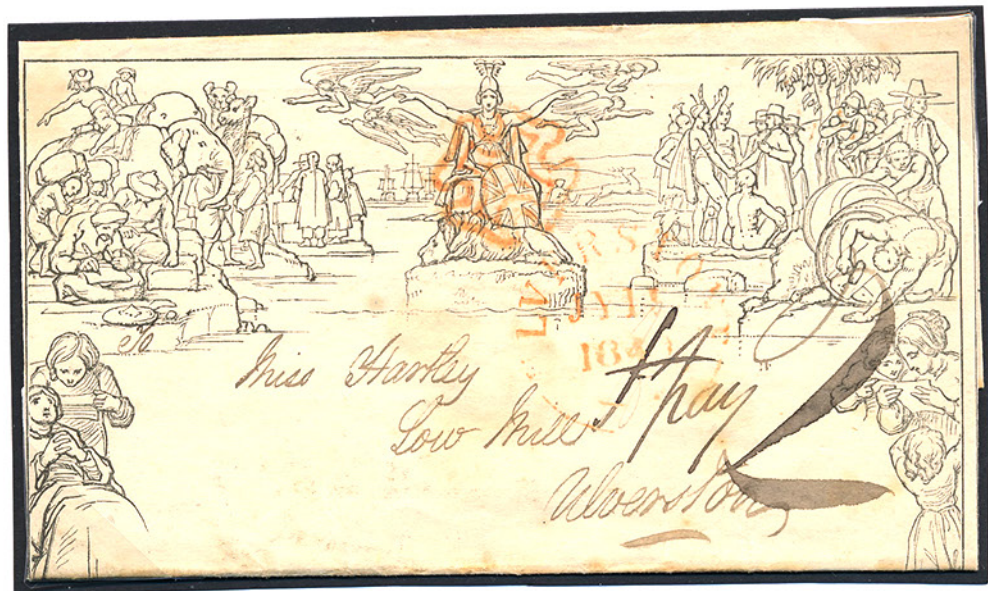 LIVERSTON
JY 1
184
To
Miss Hartley
Low Mill
to pay
2
Ulverston